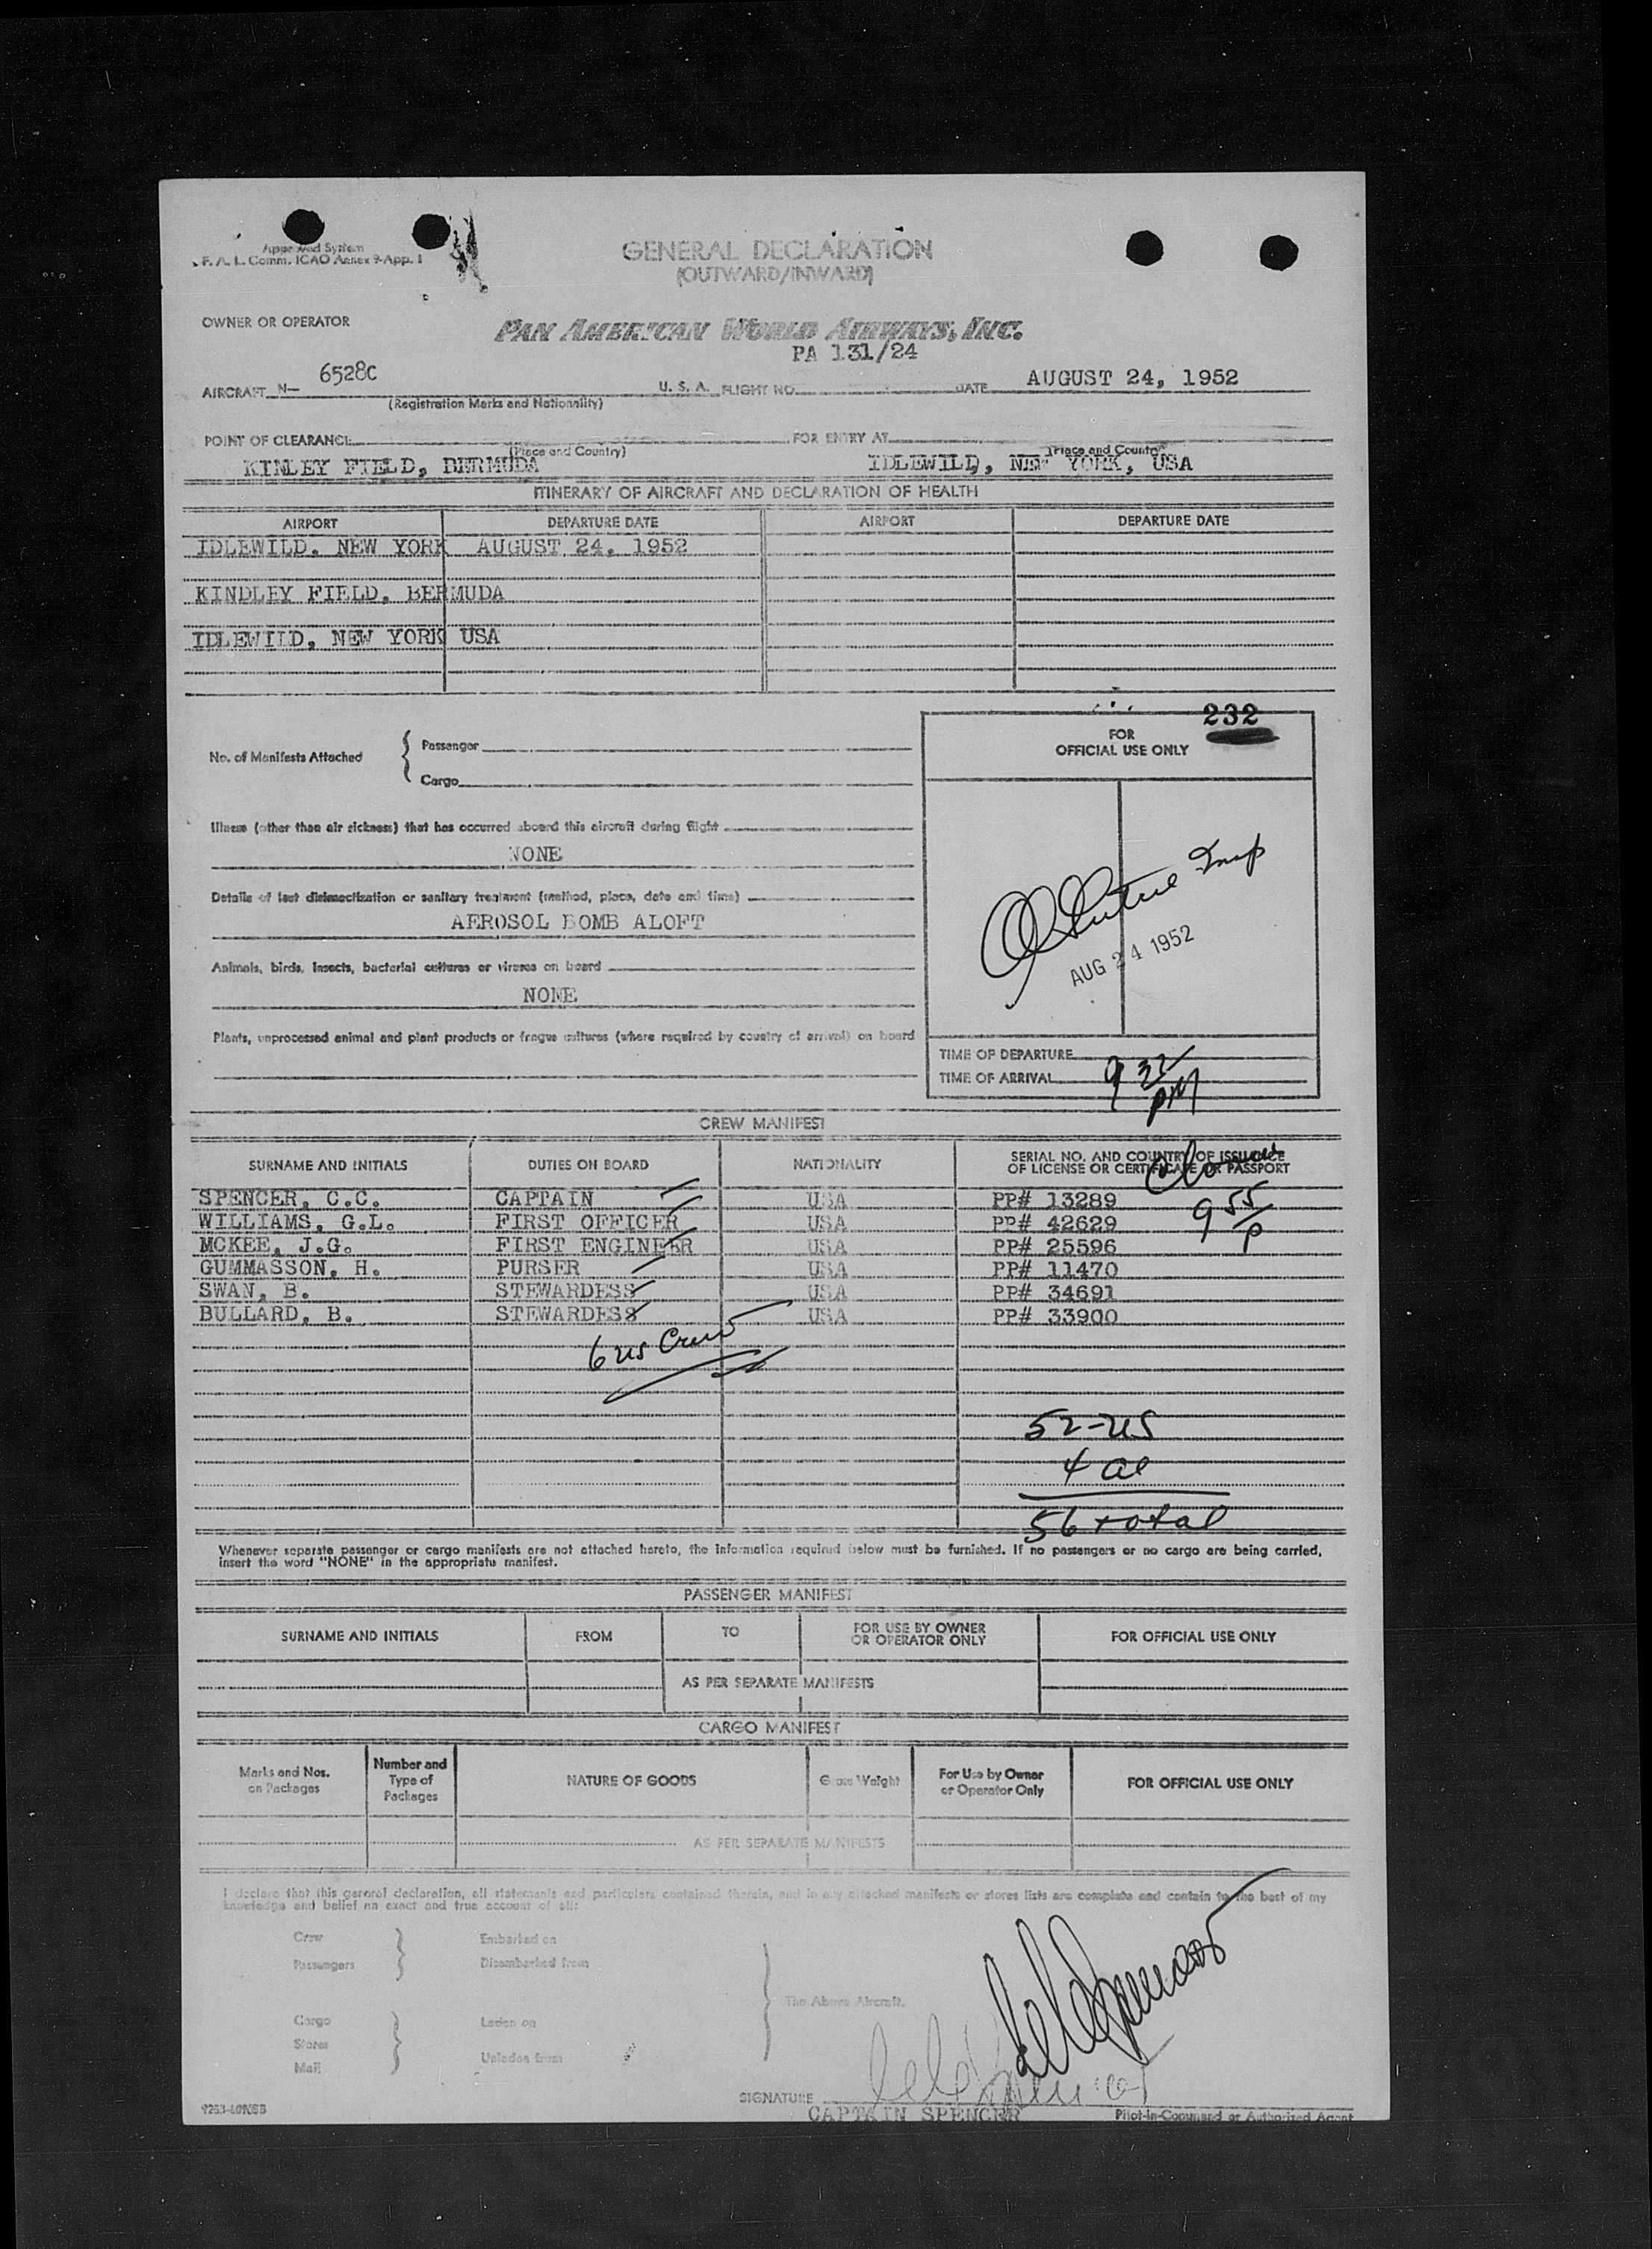 Approved System
F. A. L. Comm. ICAO Annex 9-App. 1
GENERAL DECLARATION
(OUTWARD/INWARD)
OWNER OR OPERATOR
PAN AMERICAN WORLD AIRWAYS, INC.
PA 131/24
AIRCRAFT N- 6528C U. S. A. FLIGHT NO. DATE AUGUST 24, 1952
(Registration Marks and Nationality)
POINT OF CLEARANCE FOR ENTRY AT
(Place and Country) (Place and Country)
KINLEY FIELD, BERMUDA IDLEWILD, NEW YORK, USA
ITINERARY OF AIRCRAFT AND DECLARATION OF HEALTH
AIRPORT DEPARTURE DATE AIRPORT DEPARTURE DATE
IDLEWILD. NEW YORK AUGUST 24, 1952
KINDLEY FIELD, BERMUDA
IDLEWILD, NEW YORK USA
232
FOR
OFFICIAL USE ONLY
No. of Manifests Attached
Passenger
Cargo
Illness (other than air sickness) that has occurred aboard this aircraft during flight
NONE
Details of last disinsectization or sanitary treatment (method, place, date and time)
AEROSOL BOMB ALOFT
Animals, birds, insects, bacterial cultures or viruses on board
NONE
Plants, unprocessed animal and plant products or fungus cultures (where required by country of arrival) on board
Insp
AUG 24 1952
TIME OF DEPARTURE
TIME OF ARRIVAL 9
PM
CREW MANIFEST
SURNAME AND INITIALS DUTIES ON BOARD NATIONALITY SERIAL NO. AND COUNTRY OF ISSUANCE
OF LICENSE OR CERTIFICATE OR PASSPORT
SPENCER, C.C. CAPTAIN USA PP# 13289
WILLIAMS, G.L. FIRST OFFICER USA PP# 42629
MCKEE, J.G. FIRST ENGINEER USA PP# 25596
GUMMASSON, H. PURSER USA PP# 11470
SWAN, B. STEWARDESS USA PP# 34691
BULLARD, B. STEWARDESS USA PP# 33900
9 55
P
6 US Crew
52-US
4 al
56 total
Whenever separate passenger or cargo manifests are not attached hereto, the information required below must be furnished. If no passengers or no cargo are being carried,
insert the word "NONE" in the appropriate manifest.
PASSENGER MANIFEST
SURNAME AND INITIALS FROM TO FOR USE BY OWNER
OR OPERATOR ONLY FOR OFFICIAL USE ONLY
AS PER SEPARATE MANIFESTS
CARGO MANIFEST
Marks and Nos.
on Packages
Number and
Type of
Packages
NATURE OF GOODS
Gross Weight
For Use by Owner
or Operator Only
FOR OFFICIAL USE ONLY
AS PER SEPARATE MANIFESTS
I declare that this general declaration, all statements and particulars contained therein, and in any attached manifests or stores lists are complete and contain to the best of my
knowledge and belief an exact and true account of all:
Crew Embarked on
Passengers Disembarked from
The Above Aircraft.
Cargo Laden on
Stores
Mail Unladen from
SIGNATURE
CAPTAIN SPENCER
Pilot-in-Command or Authorized Agent